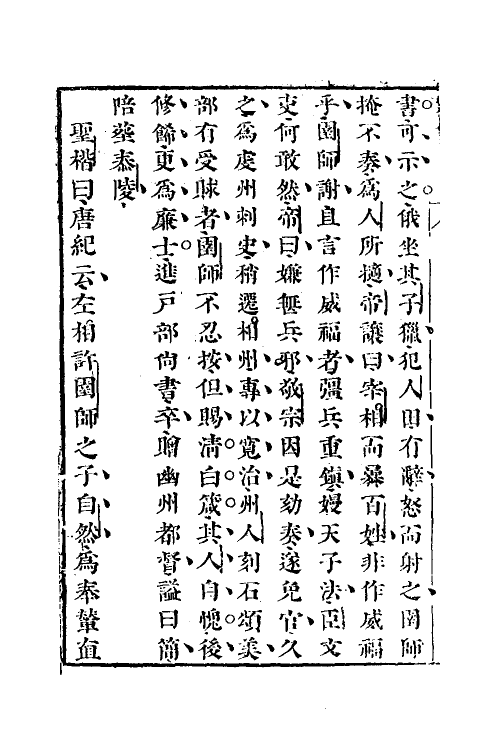 書可示之俄坐其子獵犯人田有辭怒而射之圉師
掩不奏爲人所擿帝讓曰宰相而暴百姓非作威福
乎圉師謝且言作威福者彊兵重鎮嫚天子法臣文
吏何敢然帝曰嫌無兵邪敬宗因是劾奏遂免官久
之爲虔州刺史稍遷相州專以寬治州人刻石頌美
部有受賕者圉師不忍按但賜清白箴其人自愧後
修飾更爲廉士進戸部尚書卒贈幽州都督謚曰簡
陪葬恭陵
聖楷曰唐紀云左相許圉師之子自然爲奉輦直